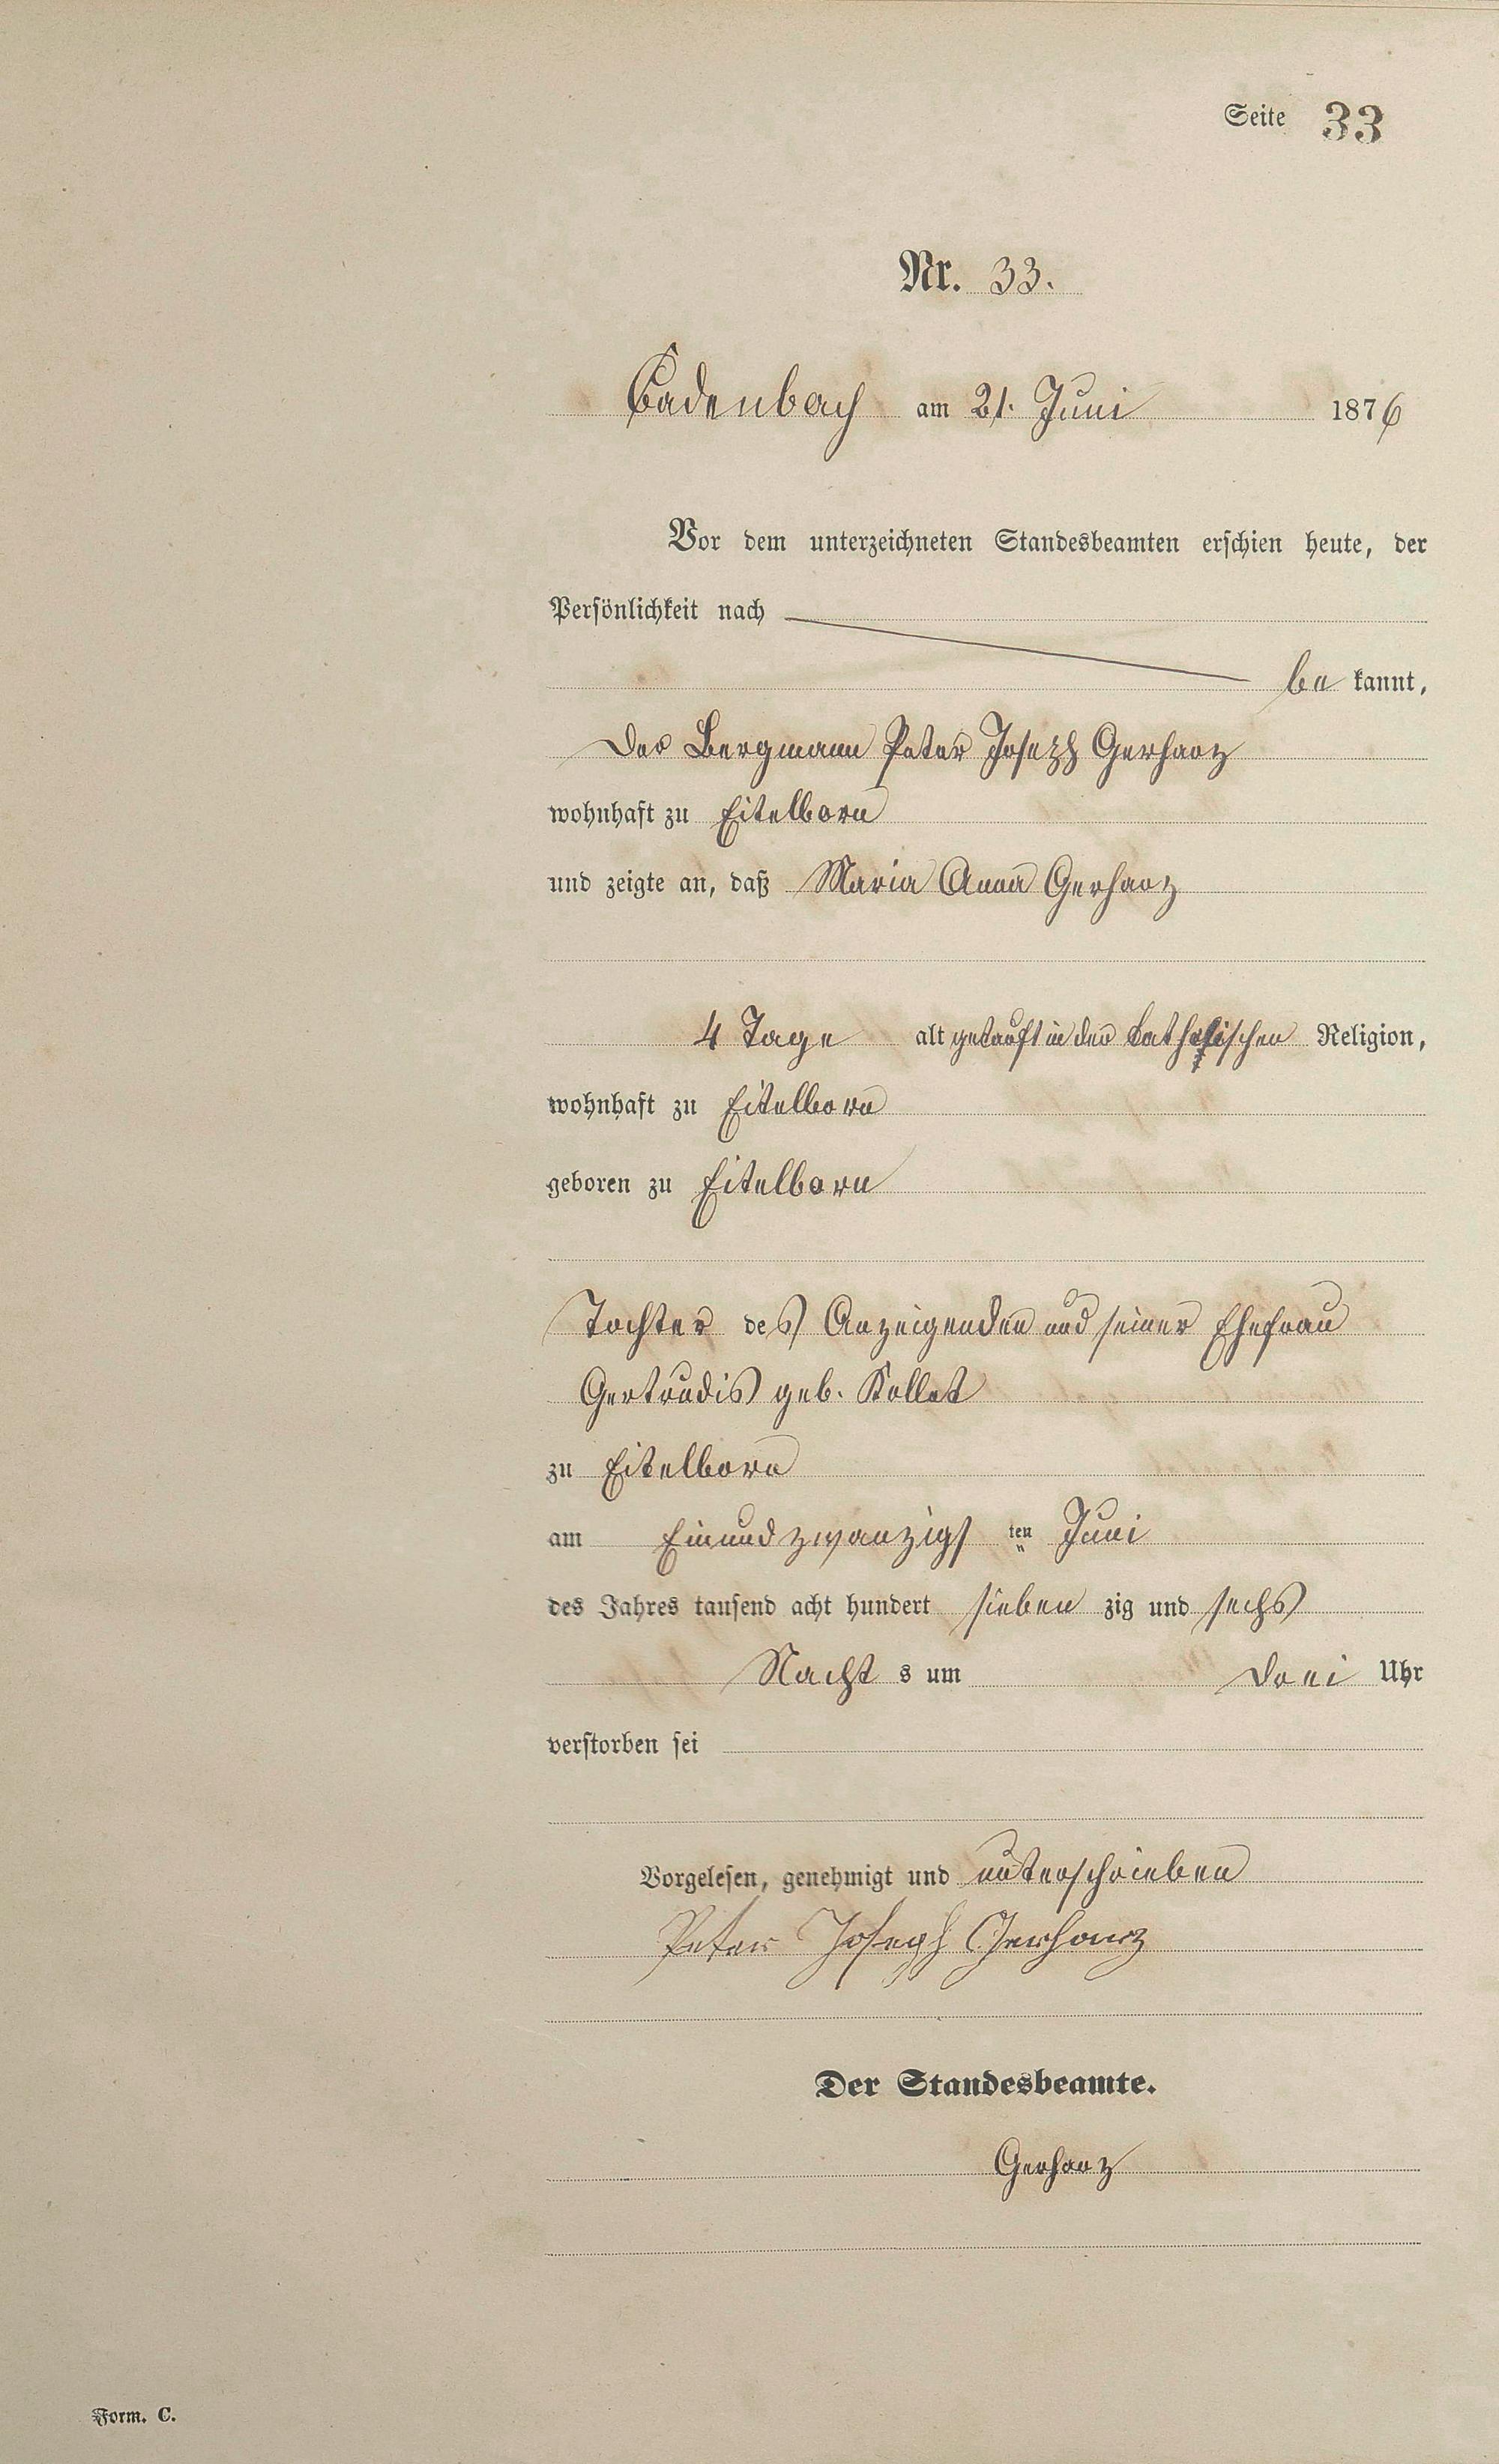 Seite 33
Nr. 33.
Cadenbach am 21. Juni 1876
Vor dem unterzeichneten Standesbeamten erschien heute, der
Persönlichkeit nach
be kannt,
Der Bergmann Peter Joseph Gerharz
wohnhaft zu Eitelborn
und zeigte an, daß Maria Anna Gerharz
4 Tage alt getauft in der katholischen Religion,
wohnhaft zu Eitelborn
geboren zu Eitelborn
Tochter des Anzeigenden und seiner Ehefrau
Gertrudis geb. Kollet
zu Eitelborn
am Einundzwanzigs ten Juni
des Jahres tausend acht hundert sieben zig und sechs
Nacht s um Drei Uhr
verstorben sei
Vorgelesen, genehmigt und unterschrieben
Peter Joseph Gerharz
Der Standesbeamte.
Gerharz
Form. C.